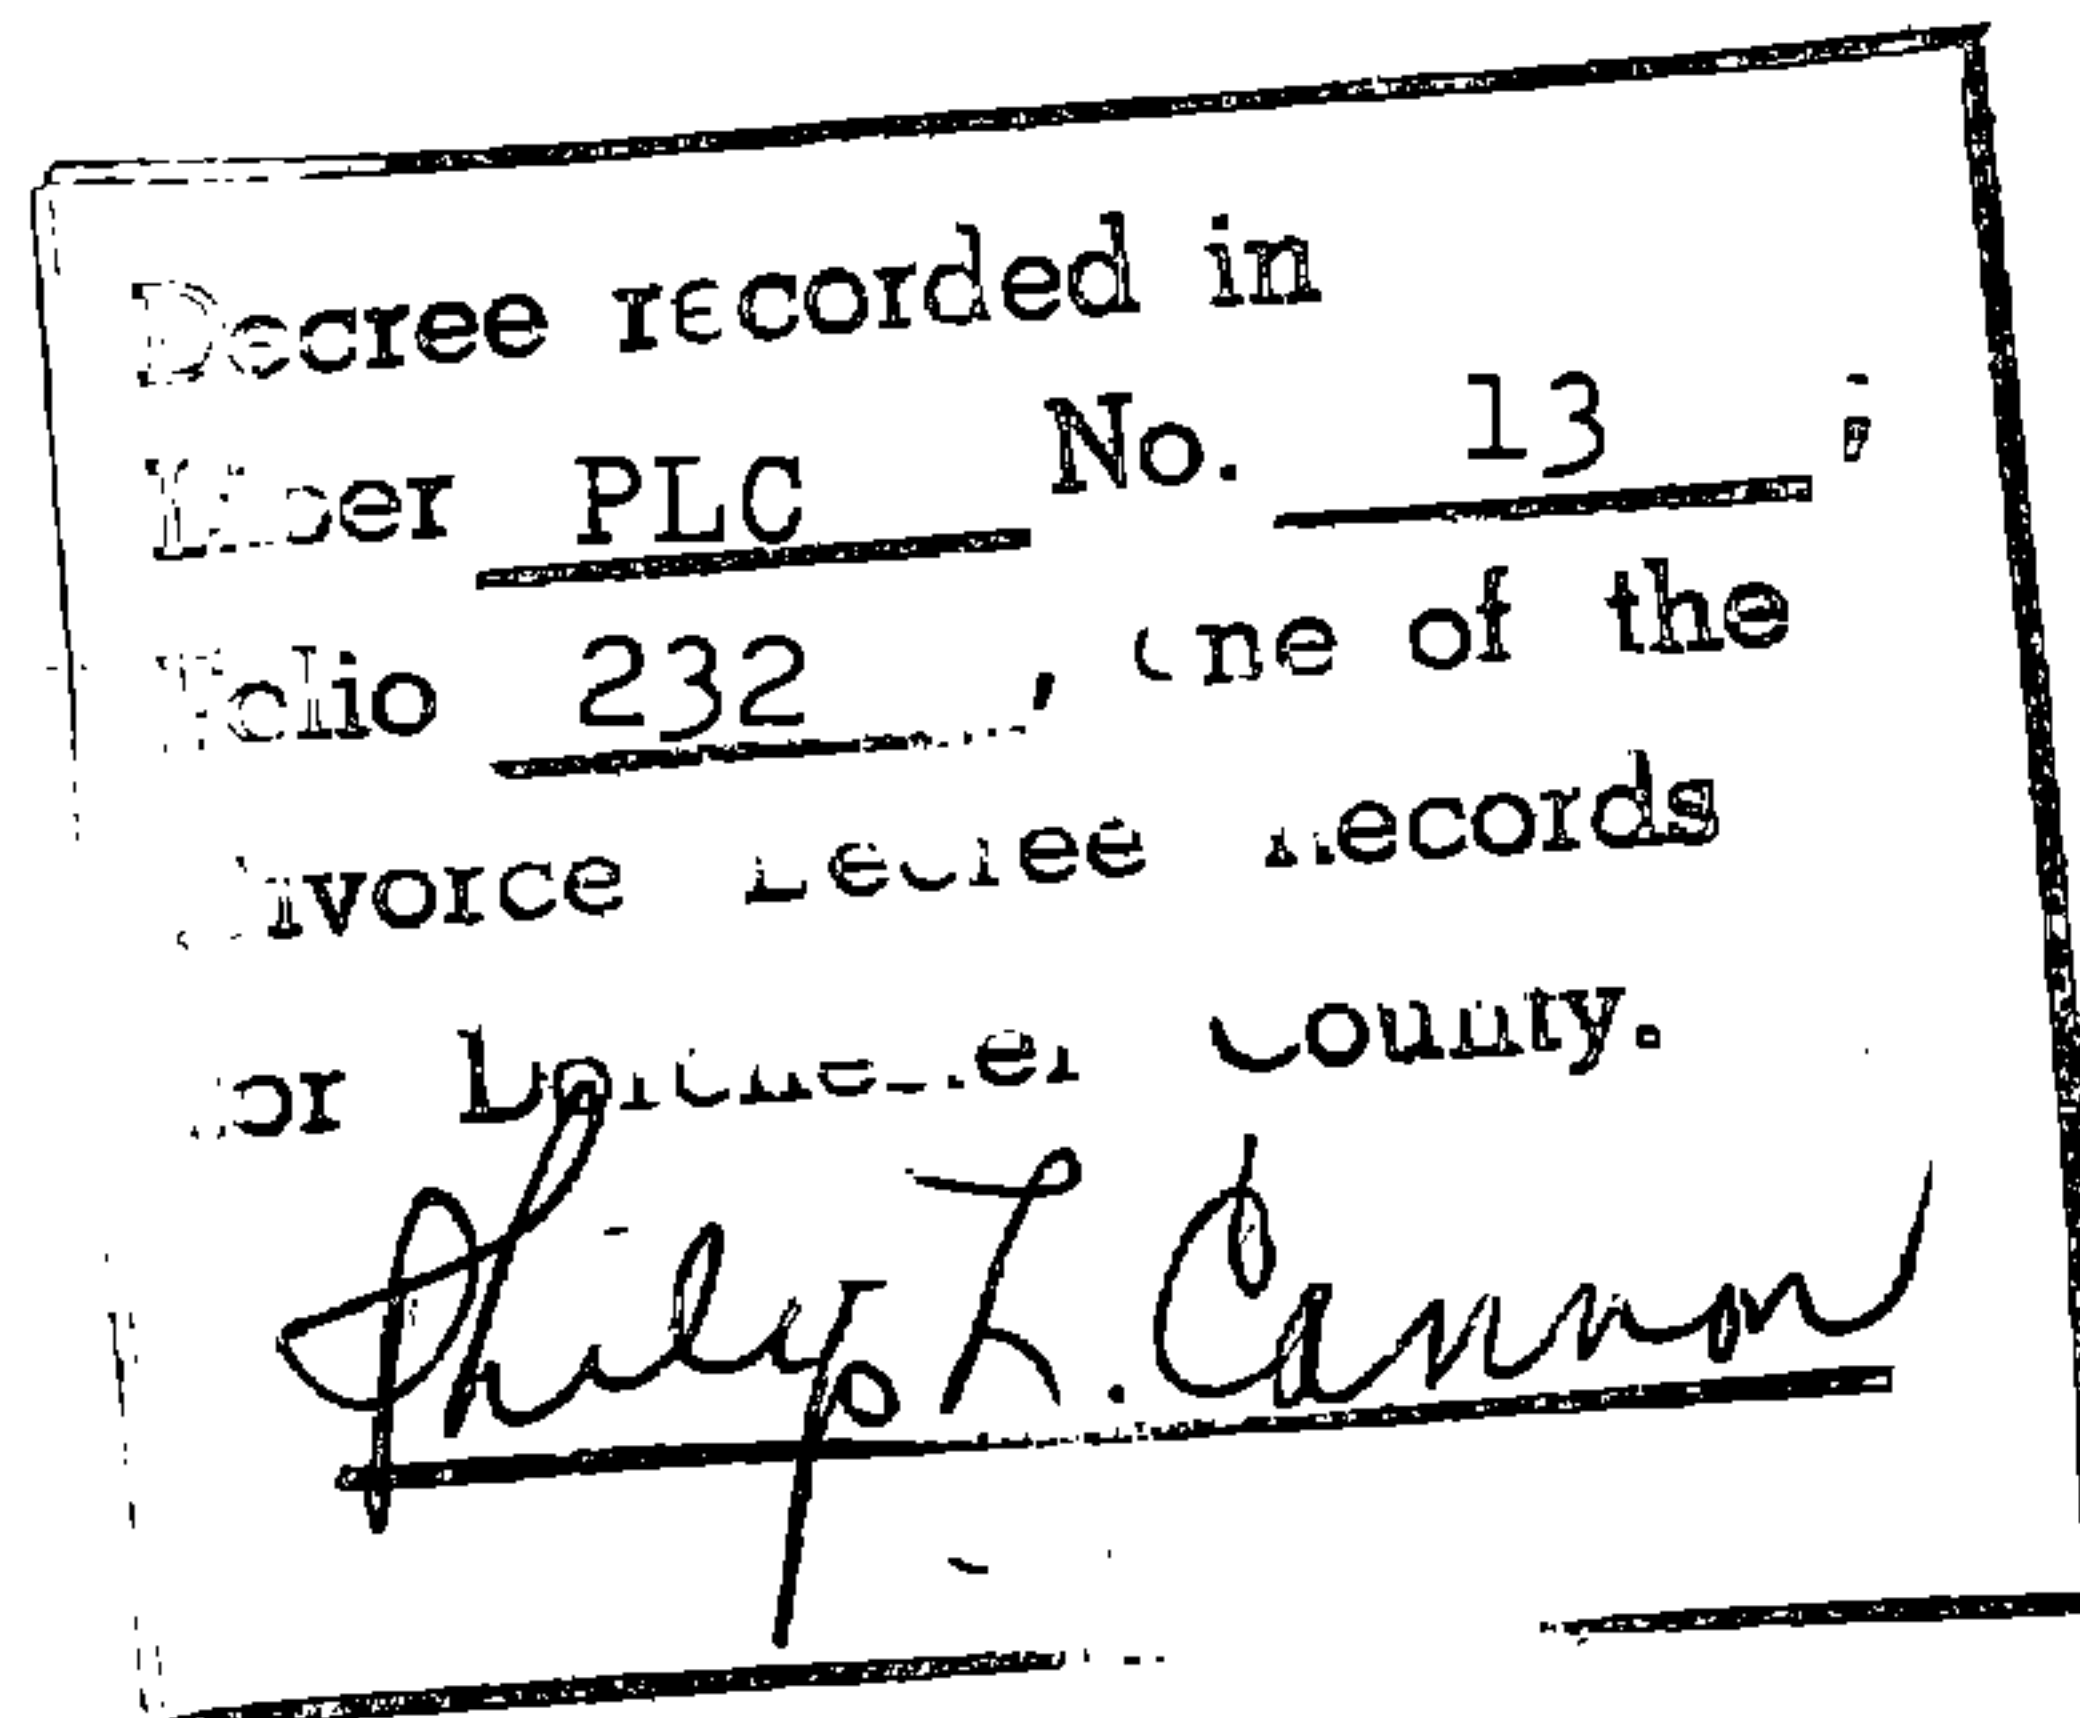 Decree recorded in
Liber PLC No. 13 ;
Folio 232 , one of the
Divorce Decree Records
for Dorchester County.
Philip L. Cannon